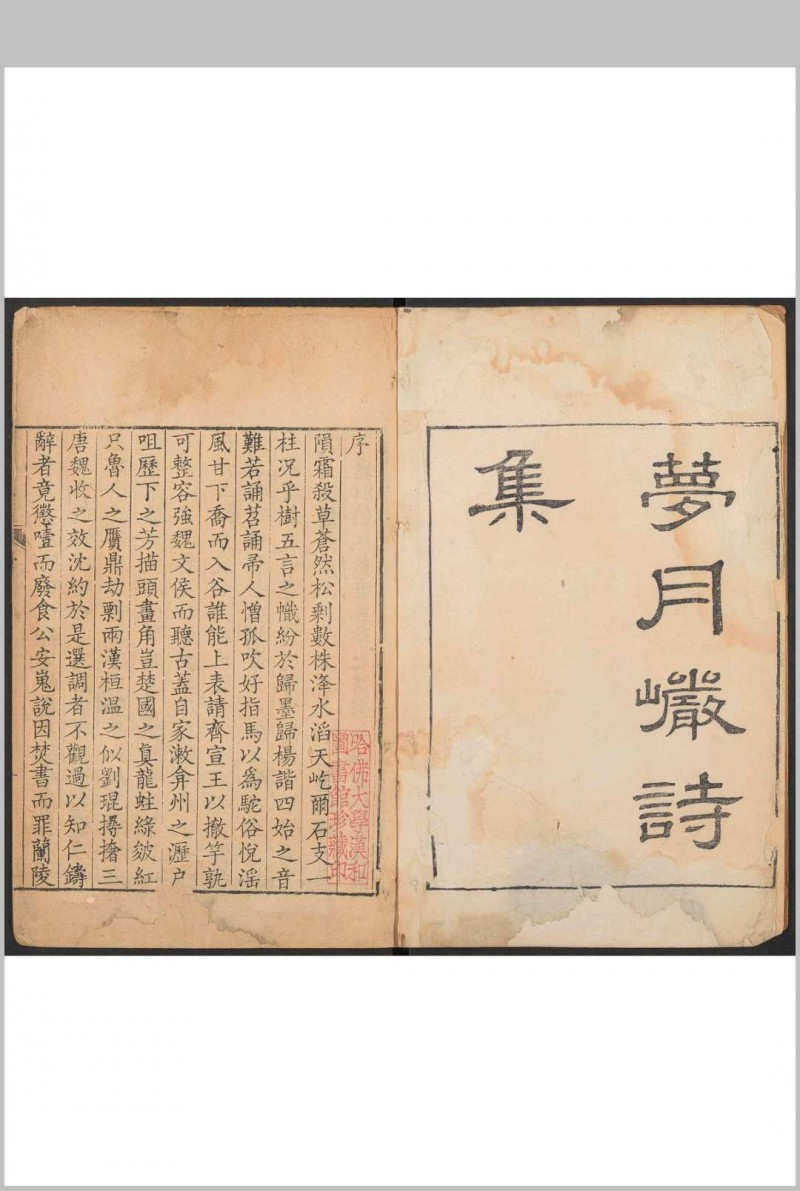 夢月巖詩
集
序
隕霜殺草蒼然松剩數株洚水滔天屹爾石支一
柱况乎樹五言之幟紛於歸墨歸楊諧四始之音
難若誦苕誦帚人憎孤吹好指馬以爲駝俗悅滛
風甘下喬而入谷誰能上表請齊宣王以撤竽孰
可整容強魏文侯而聽古蓋自家漱弇州之瀝户
咀歷下之芳描頭畫角豈楚國之真龍蛙綠皴紅
只魯人之贋鼎劫剽兩漢桓温之似劉琨撏撦三
唐魏收之效沈約於是選調者不觀過以知仁鑄
辭者竟懲噎而廢食公安嵬說因焚書而罪蘭陵
哈佛大學漢和
圖書館珍藏印